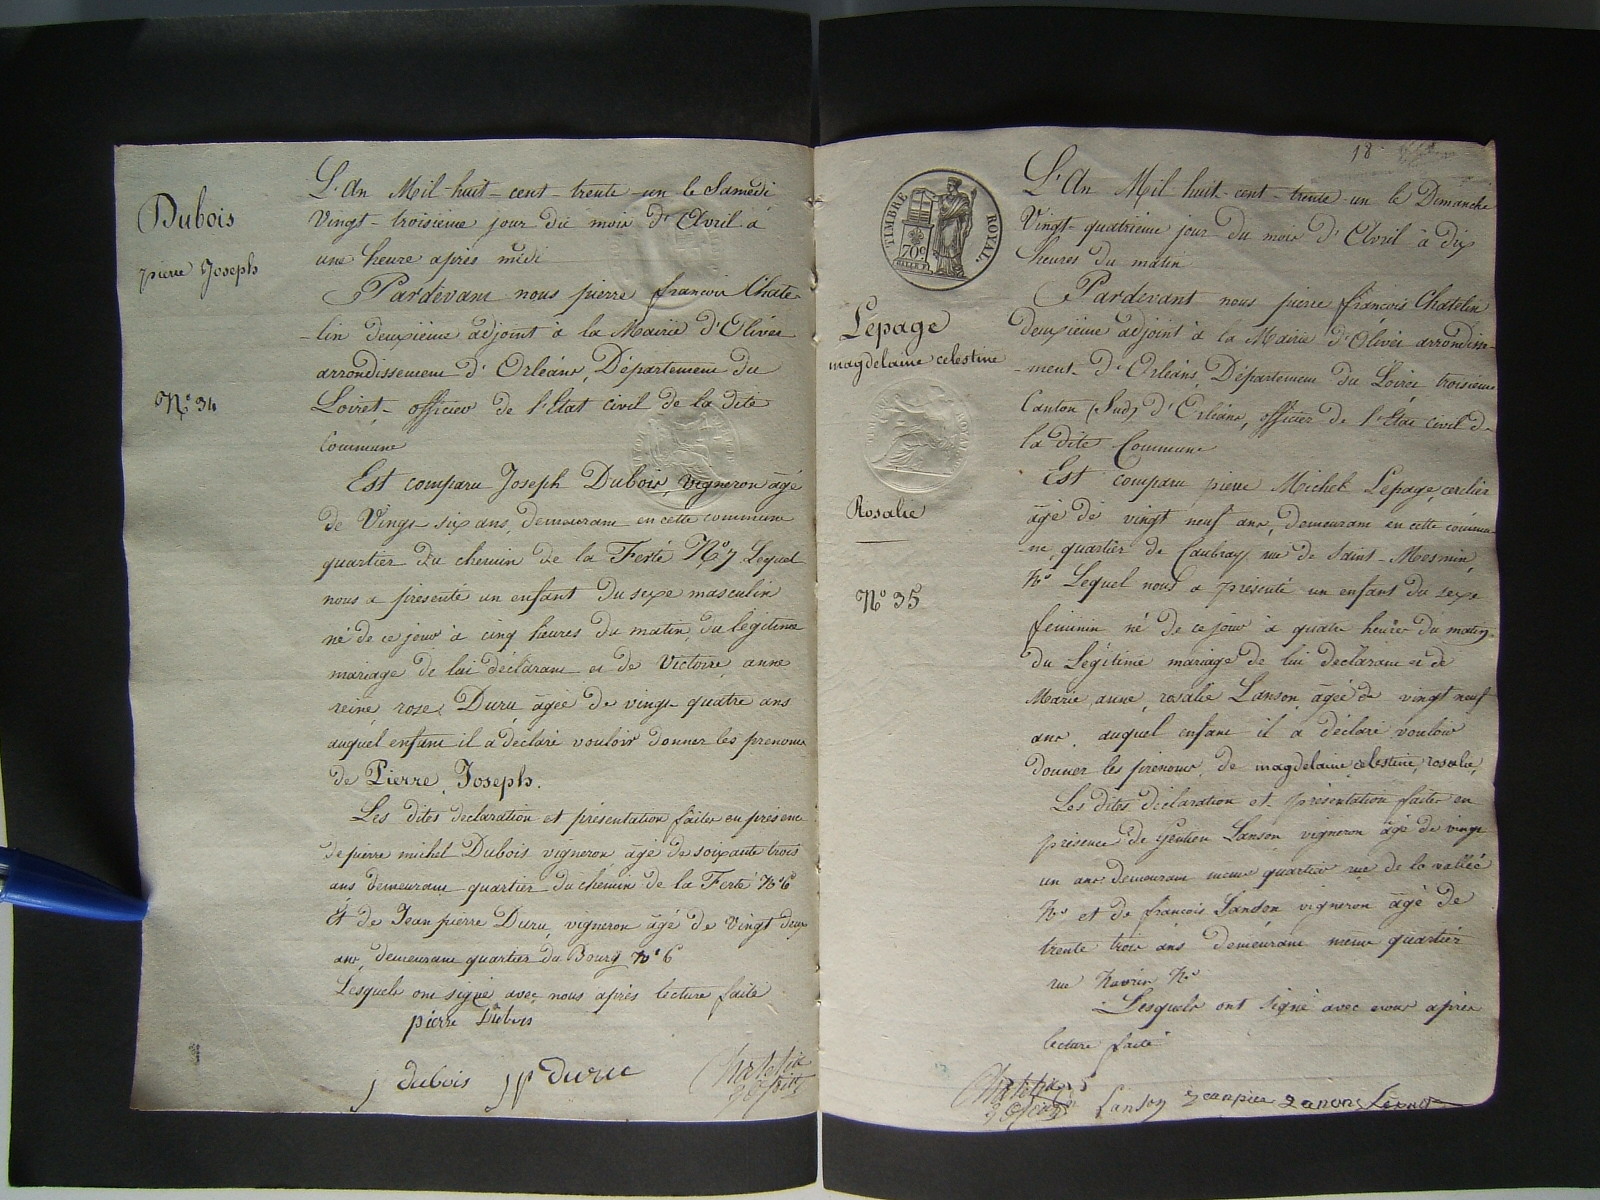 Dubois
pierre Joseph
N° 34
L'An Mil-huit-cent-trente-un le Samedi
Vingt-troisieme jour du mois d'Avril à
une heure après midi
Pardevant nous pierre francois Chate
-lin deuxième adjoint à la Mairie d'Olivet
arrondissement d'Orléans, Département du
Loiret officier de l'Etat civil de la dite
Commune
Est comparu Joseph Dubois, vigneron âgé
de Vingt-six ans, demeurant en cette commune
quartier du chemin de la Ferté N° 7 Lequel
nous a présenté un enfant du sexe masculin
né de ce jour à cinq heures du matin, du légitime
mariage de lui déclarant et de Victoire, anne
reine, rose, Duru, âgée de vingt-quatre ans
auquel enfant il a déclaré vouloir donner les prenoms
de Pierre, Joseph.
Les dites declaration et présentation faites en présence
de pierre michel Dubois vigneron âgé de soixante trois
ans demeurant quartier du chemin de la Ferté N° 6
Et de Jean pierre Duru, vigneron âgé de Vingt deux
ans, demeurant quartier du Bourg N° 6
Lesquels ont signé avec nous après lecture faite
pierre Dubois
j dubois jp duruc
18
TIMBRE ROYAL.
70c
Lepage
magdelaine celestine
Rosalie
N° 35
L'An Mil huit-cent-trente-un le Dimanche
Vingt-quatrieme jour du mois d'Avril à dix
heures du matin
Pardevant nous pierre françois Chatelin
deuxième adjoint à la Mairie d'Olivet arrondisse-
-ment d'Orléans, Département du Loiret troisieme
Canton (Sud) d'Orléans, officier de l'Etat civil de
la dite Commune
Est comparu pierre Michel Lepage, cerclier
âgé de vingt neuf ans, demeurant en cette commu-
-ne, quartier de Caubray, rue de Saint-Mesmin,
N° Lequel nous a présenté un enfant du sexe
féminin né de ce jour à quatre heures du matin
du Légitime mariage de lui declarant et de
Marie, anne, rosalie Lanson, âgée de vingt neuf
ans. auquel enfant il a déclaré vouloir
donner les prénoms, de magdelaine, celestine, rosalie,
Les dites déclaration et présentation faites en
présence de Gentien Lanson vigneron âgé de vingt
un ans demeurant meme quartier rue de la vallée
N° et de françois Lanson vigneron âgé de
trente trois ans demeurant meme quartier
rue N°
Lesquels ont signé avec nous après
lecture faite
Lanson